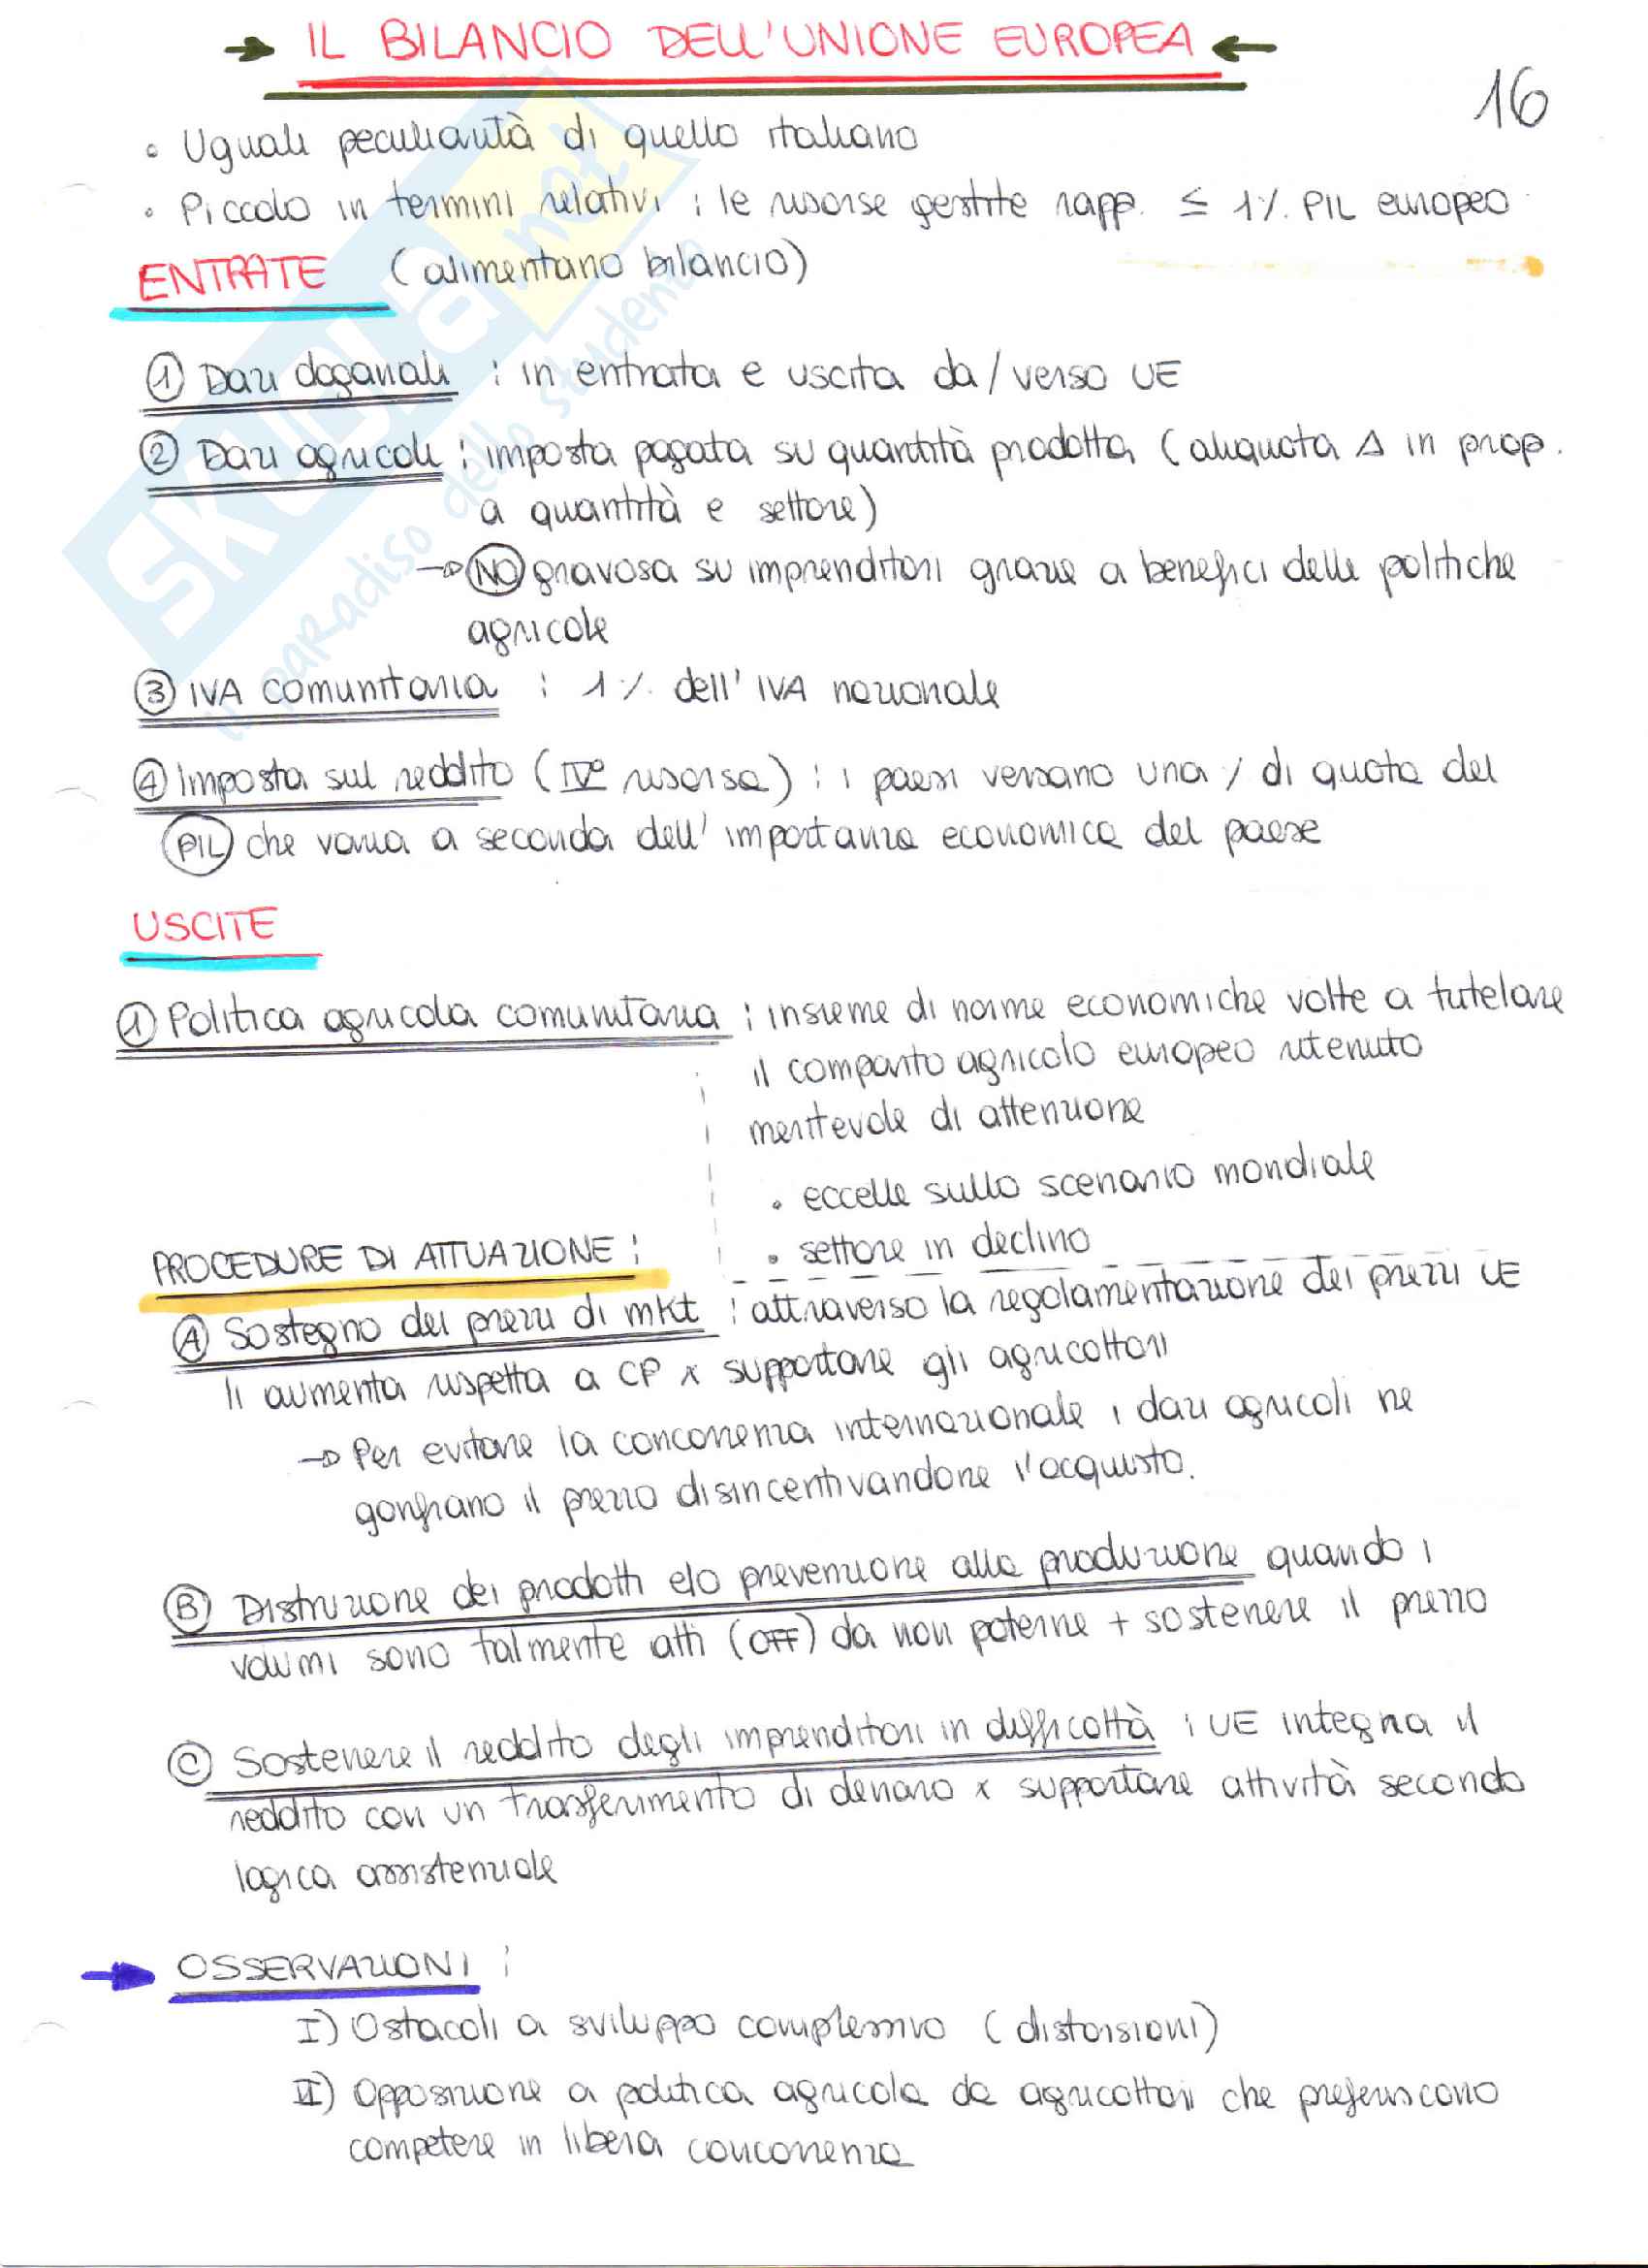 → IL BILANCIO DELL'UNIONE EUROPEA ←
16
• Uguali peculiarità di quello italiano
• Piccolo in termini relativi : le risorse gestite rapp. ≤ 1% PIL europeo
ENTRATE (alimentano bilancio)
① Dazi doganali : in entrata e uscita da/verso UE
② Dazi agricoli : imposta pagata su quantità prodotta (aliquota Δ in prop.
a quantità e settore)
→ NO gravosa su imprenditori grazie a benefici delle politiche
agricole
③ IVA comunitaria : 1% dell'IVA nazionale
④ Imposta sul reddito (IVᵒ risorsa) : i paesi versano una % di quota del
PIL che varia a seconda dell'importanza economica del paese
USCITE
① Politica agricola comunitaria : insieme di norme economiche volte a tutelare
il comparto agricolo europeo ritenuto
meritevole di attenzione
• eccelle sullo scenario mondiale
• settore in declino
PROCEDURE DI ATTUAZIONE :
Ⓐ Sostegno dei prezzi di mkt : attraverso la regolamentazione dei prezzi UE
li aumenta rispetto a CP x supportare gli agricoltori
→ Per evitare la concorrenza internazionale i dazi agricoli ne
gonfiano il prezzo disincentivandone l'acquisto.
Ⓑ Distruzione dei prodotti e/o prevenzione alla produzione quando i
volumi sono talmente alti (OFF) da non poterne + sostenere il prezzo
Ⓒ Sostenere il reddito degli imprenditori in difficoltà : UE integra il
reddito con un trasferimento di denaro x supportare attività secondo
logica assistenziale
→ OSSERVAZIONI :
I) Ostacoli a sviluppo complessivo (distorsioni)
II) Opposizione a politica agricola da agricoltori che preferiscono
competere in libera concorrenza
SKUOLA.net
il paradiso dello studente